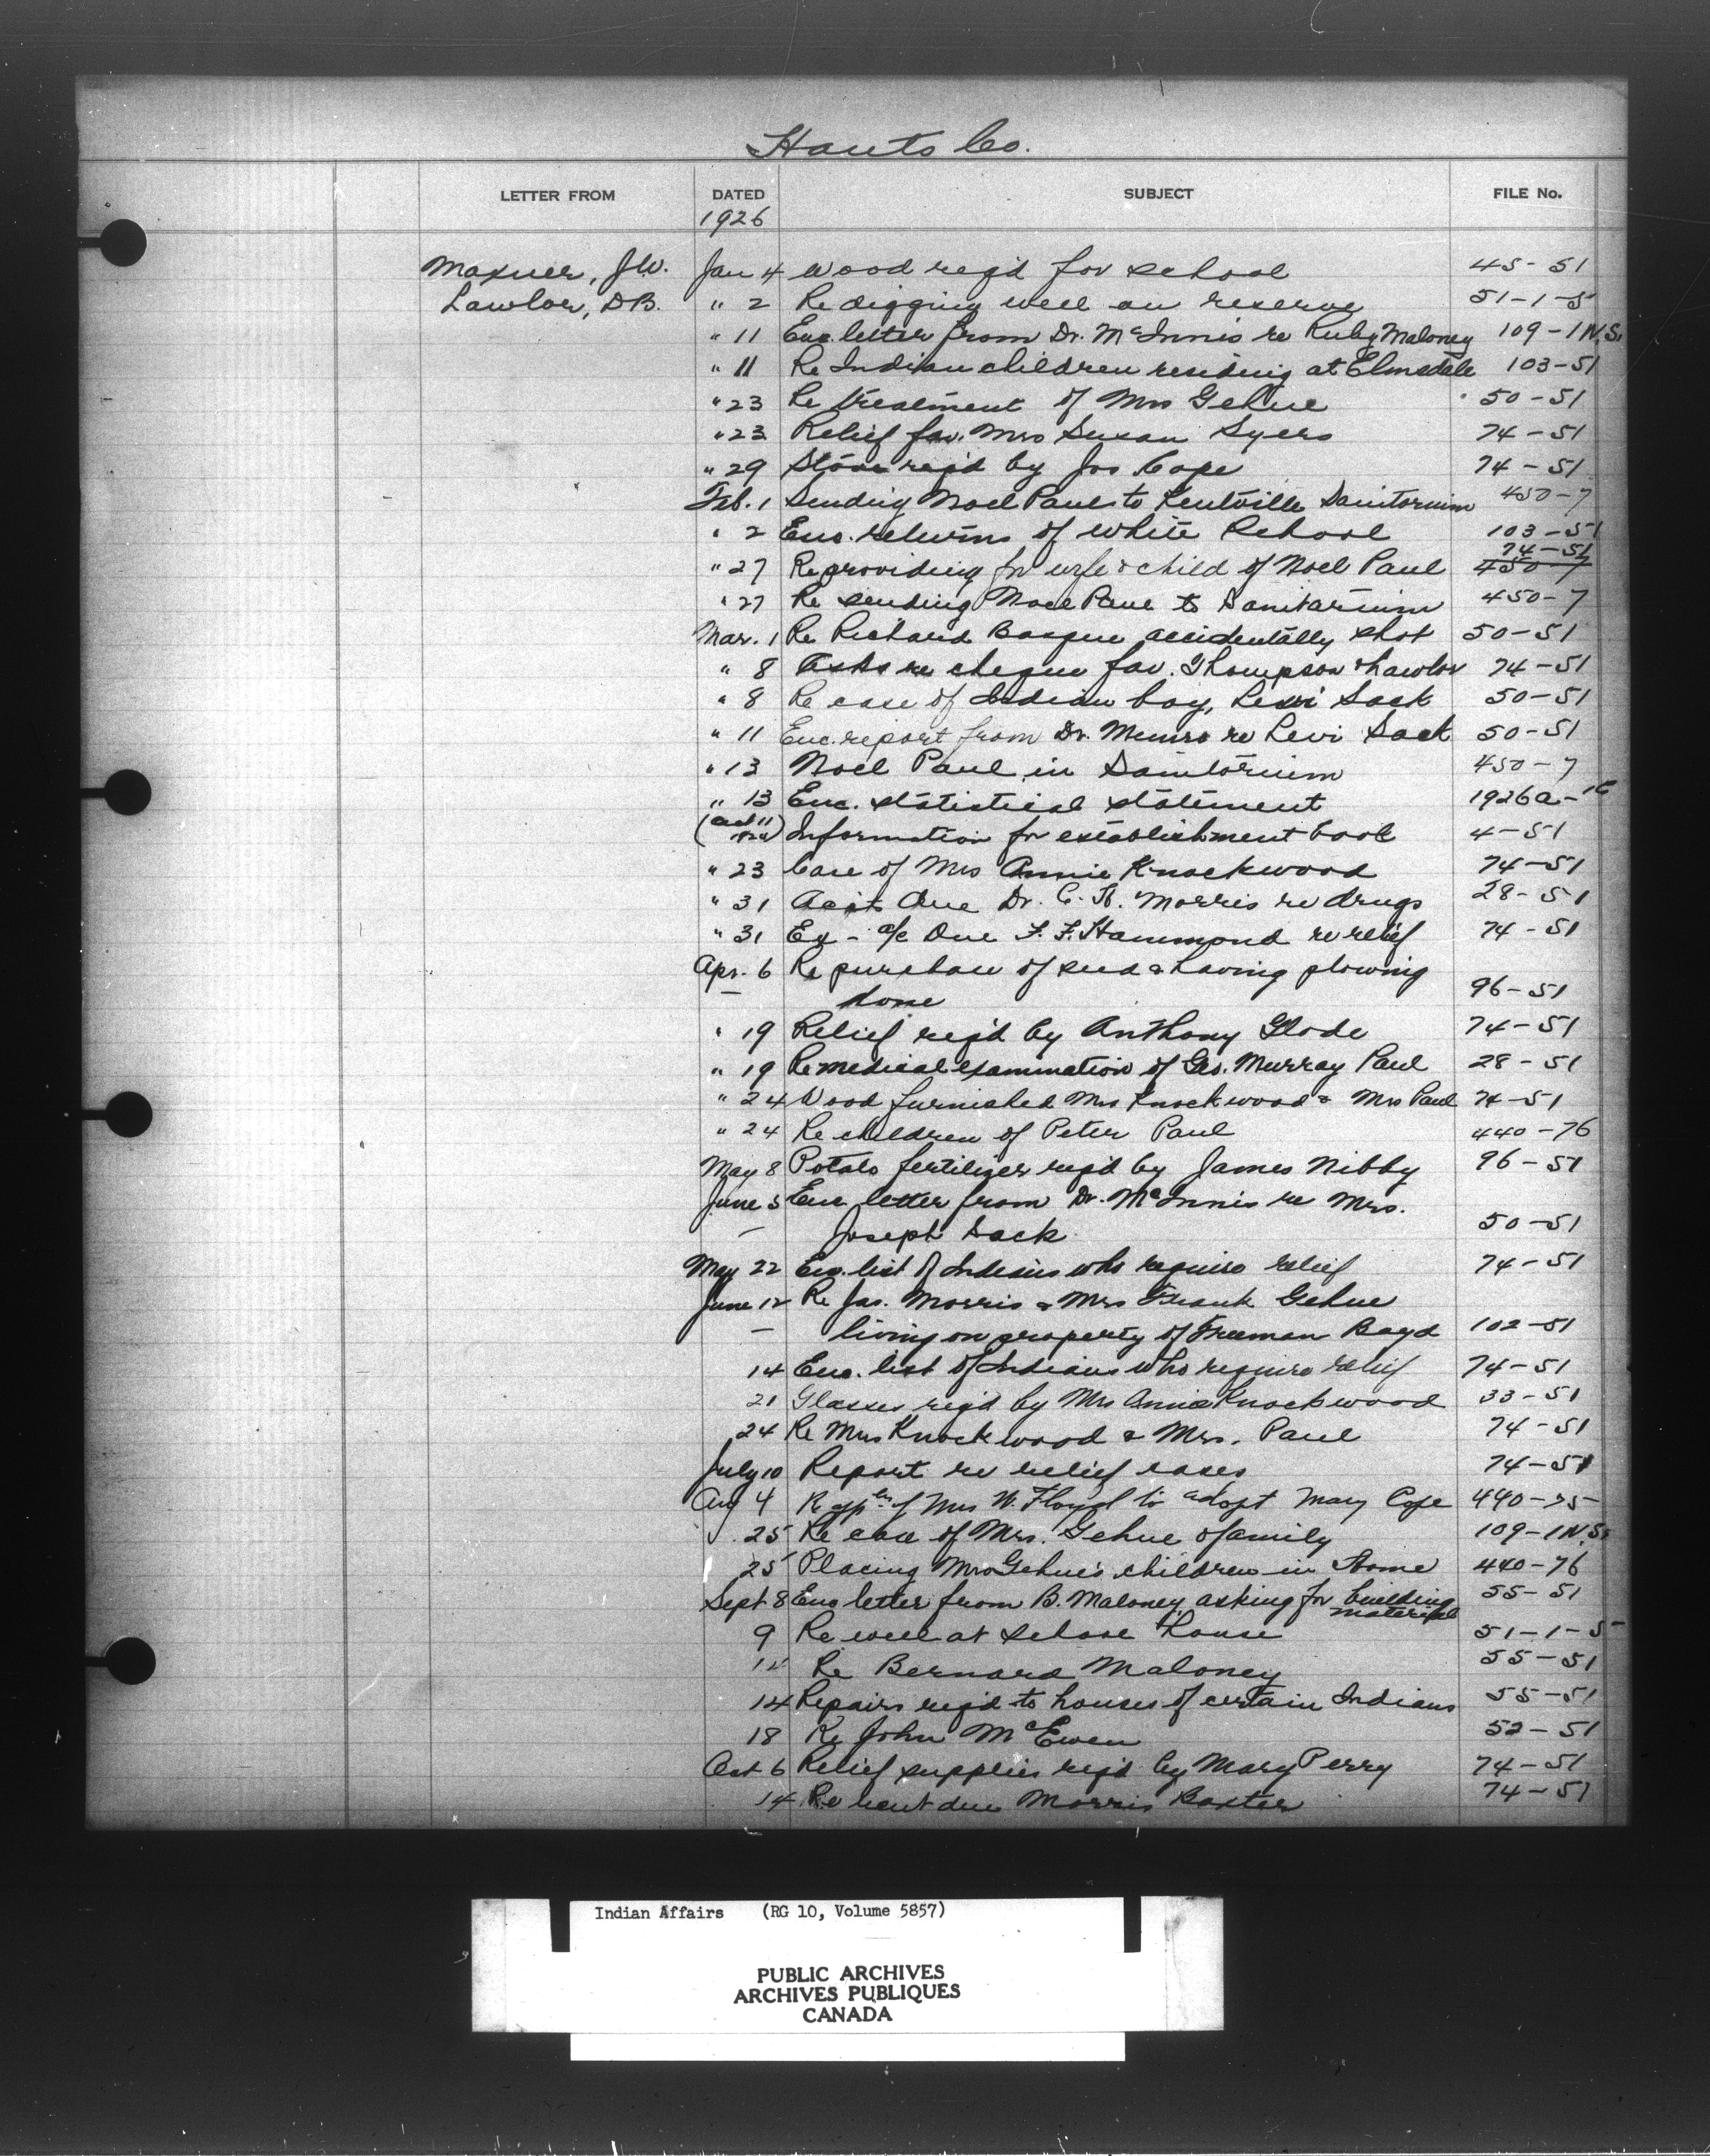 Hants Co.
LETTER FROM DATED SUBJECT FILE No.
1926
Maxner, J.W. Jan 4 Wood req'd for school 45-51
Lawlor, D.B. " 2 Re digging well on reserve 51-1-5
" 11 Enc. letter from Dr. McInnis re Ruby Maloney 109-1 N.S.
" 11 Re Indian children residing at Elmsdale 103-51
" 23 Re treatment of Mrs Gehue 50-51
" 23 Relief fav. Mrs Susan Syers 74-51
" 29 Stove req'd by Jos Cope 74-51
Feb. 1 Sending Noel Paul to Kentville Sanitorium 450-7
" 2 Enc. returns of white School 103-51
74-51
" 27 Re providing for wife & child of Noel Paul 450-7
" 27 Re sending Noel Paul to Sanitarium 450-7
Mar. 1 Re Richard Basque accidentally shot 50-51
" 8 Asks re cheque fav. Thompson & Lawlor 74-51
" 8 Re case of Indian boy, Levi Sack 50-51
" 11 Enc. report from Dr. Munro re Levi Sack 50-51
" 13 Noel Paul in Sanitorium 450-7
" 13 Enc. statistical statement 1926a-16
Information for establishment book 4-51
" 23 Care of Mrs Annie Knockwood 74-51
" 31 Accts due Dr. C. H. Morris re drugs 28-51
" 31 Ex - a/c Due F. F. Hammond re relief 74-51
Apr. 6 Re purchase of seed & having plowing
— done 96-51
" 19 Relief req'd by Anthony Glode 74-51
" 19 Re medical examination of Geo. Murray Paul 28-51
" 24 Wood furnished Mrs Knockwood & Mrs Paul 74-51
" 24 Re children of Peter Paul 440-76
May 8 Potato fertilizer req'd by James Nibby 96-51
June 5 Enc letter from Dr. McInnis re Mrs.
— Joseph Sack 50-51
May 22 Enc. list of Indians who require relief 74-51
June 12 Re Jas. Morris & Mrs Frank Gehue
— living on property of Freeman Boyd 102-51
14 Enc. list of Indians who require relief 74-51
21 Glasses req'd by Mrs Annie Knockwood 33-51
24 Re Mrs Knockwood & Mrs. Paul 74-51
July 10 Report re relief cases 74-51
Aug 4 Re appln of Mrs W. Floyd to adopt Mary Cope 440-75
25 Re case of Mrs. Gehue & family 109-1 N.S.
25 Placing Mrs Gehue's children in Home 440-76
Sept 8 Enc letter from B. Maloney asking for building 55-51
material
9 Re well at school house 51-1-5
12 Re Bernard Maloney 55-51
14 Repairs req'd to houses of certain Indians 55-51
18 Re John McEwen 52-51
Oct 6 Relief supplies req'd by Mary Perry 74-51
14 Re rent due Morris Baxter 74-51
Indian Affairs (RG 10, Volume 5857)
PUBLIC ARCHIVES
ARCHIVES PUBLIQUES
CANADA